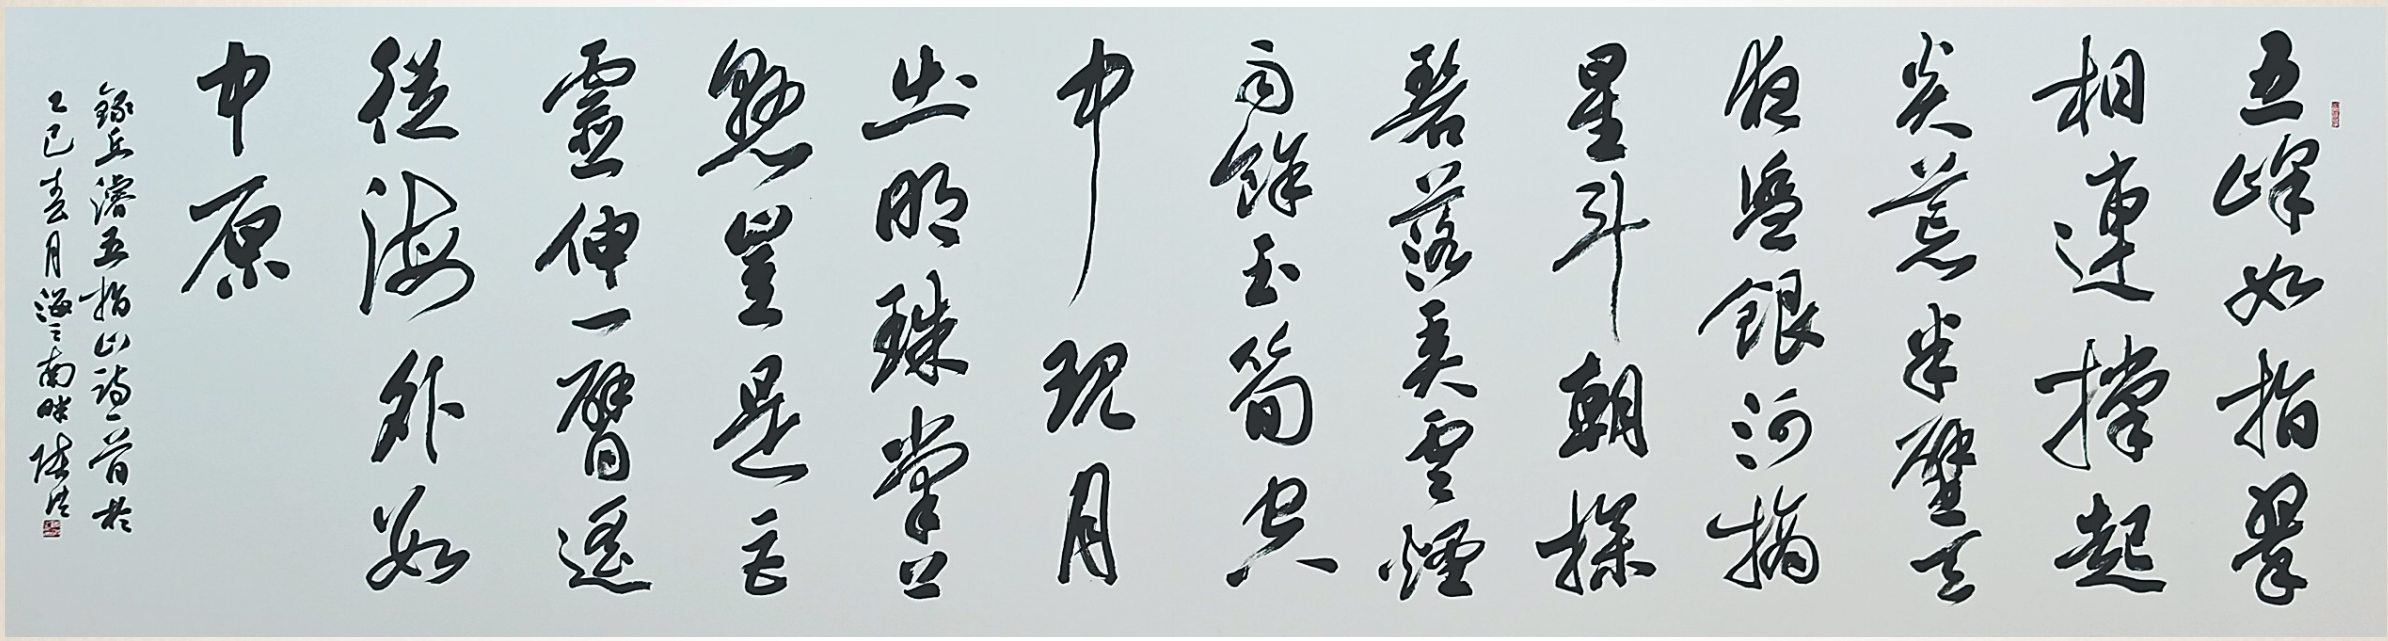 五峰如指翠
相連撐起
炎荒半壁天
夜盥銀河摘
星斗朝探
碧落弄雲煙
雨餘玉筍空
中現月
出明珠掌上
懸豈是巨
靈伸一臂遙
從海外數
中原
錄丘濬五指山詩一首於
乙巳春月海之南畔